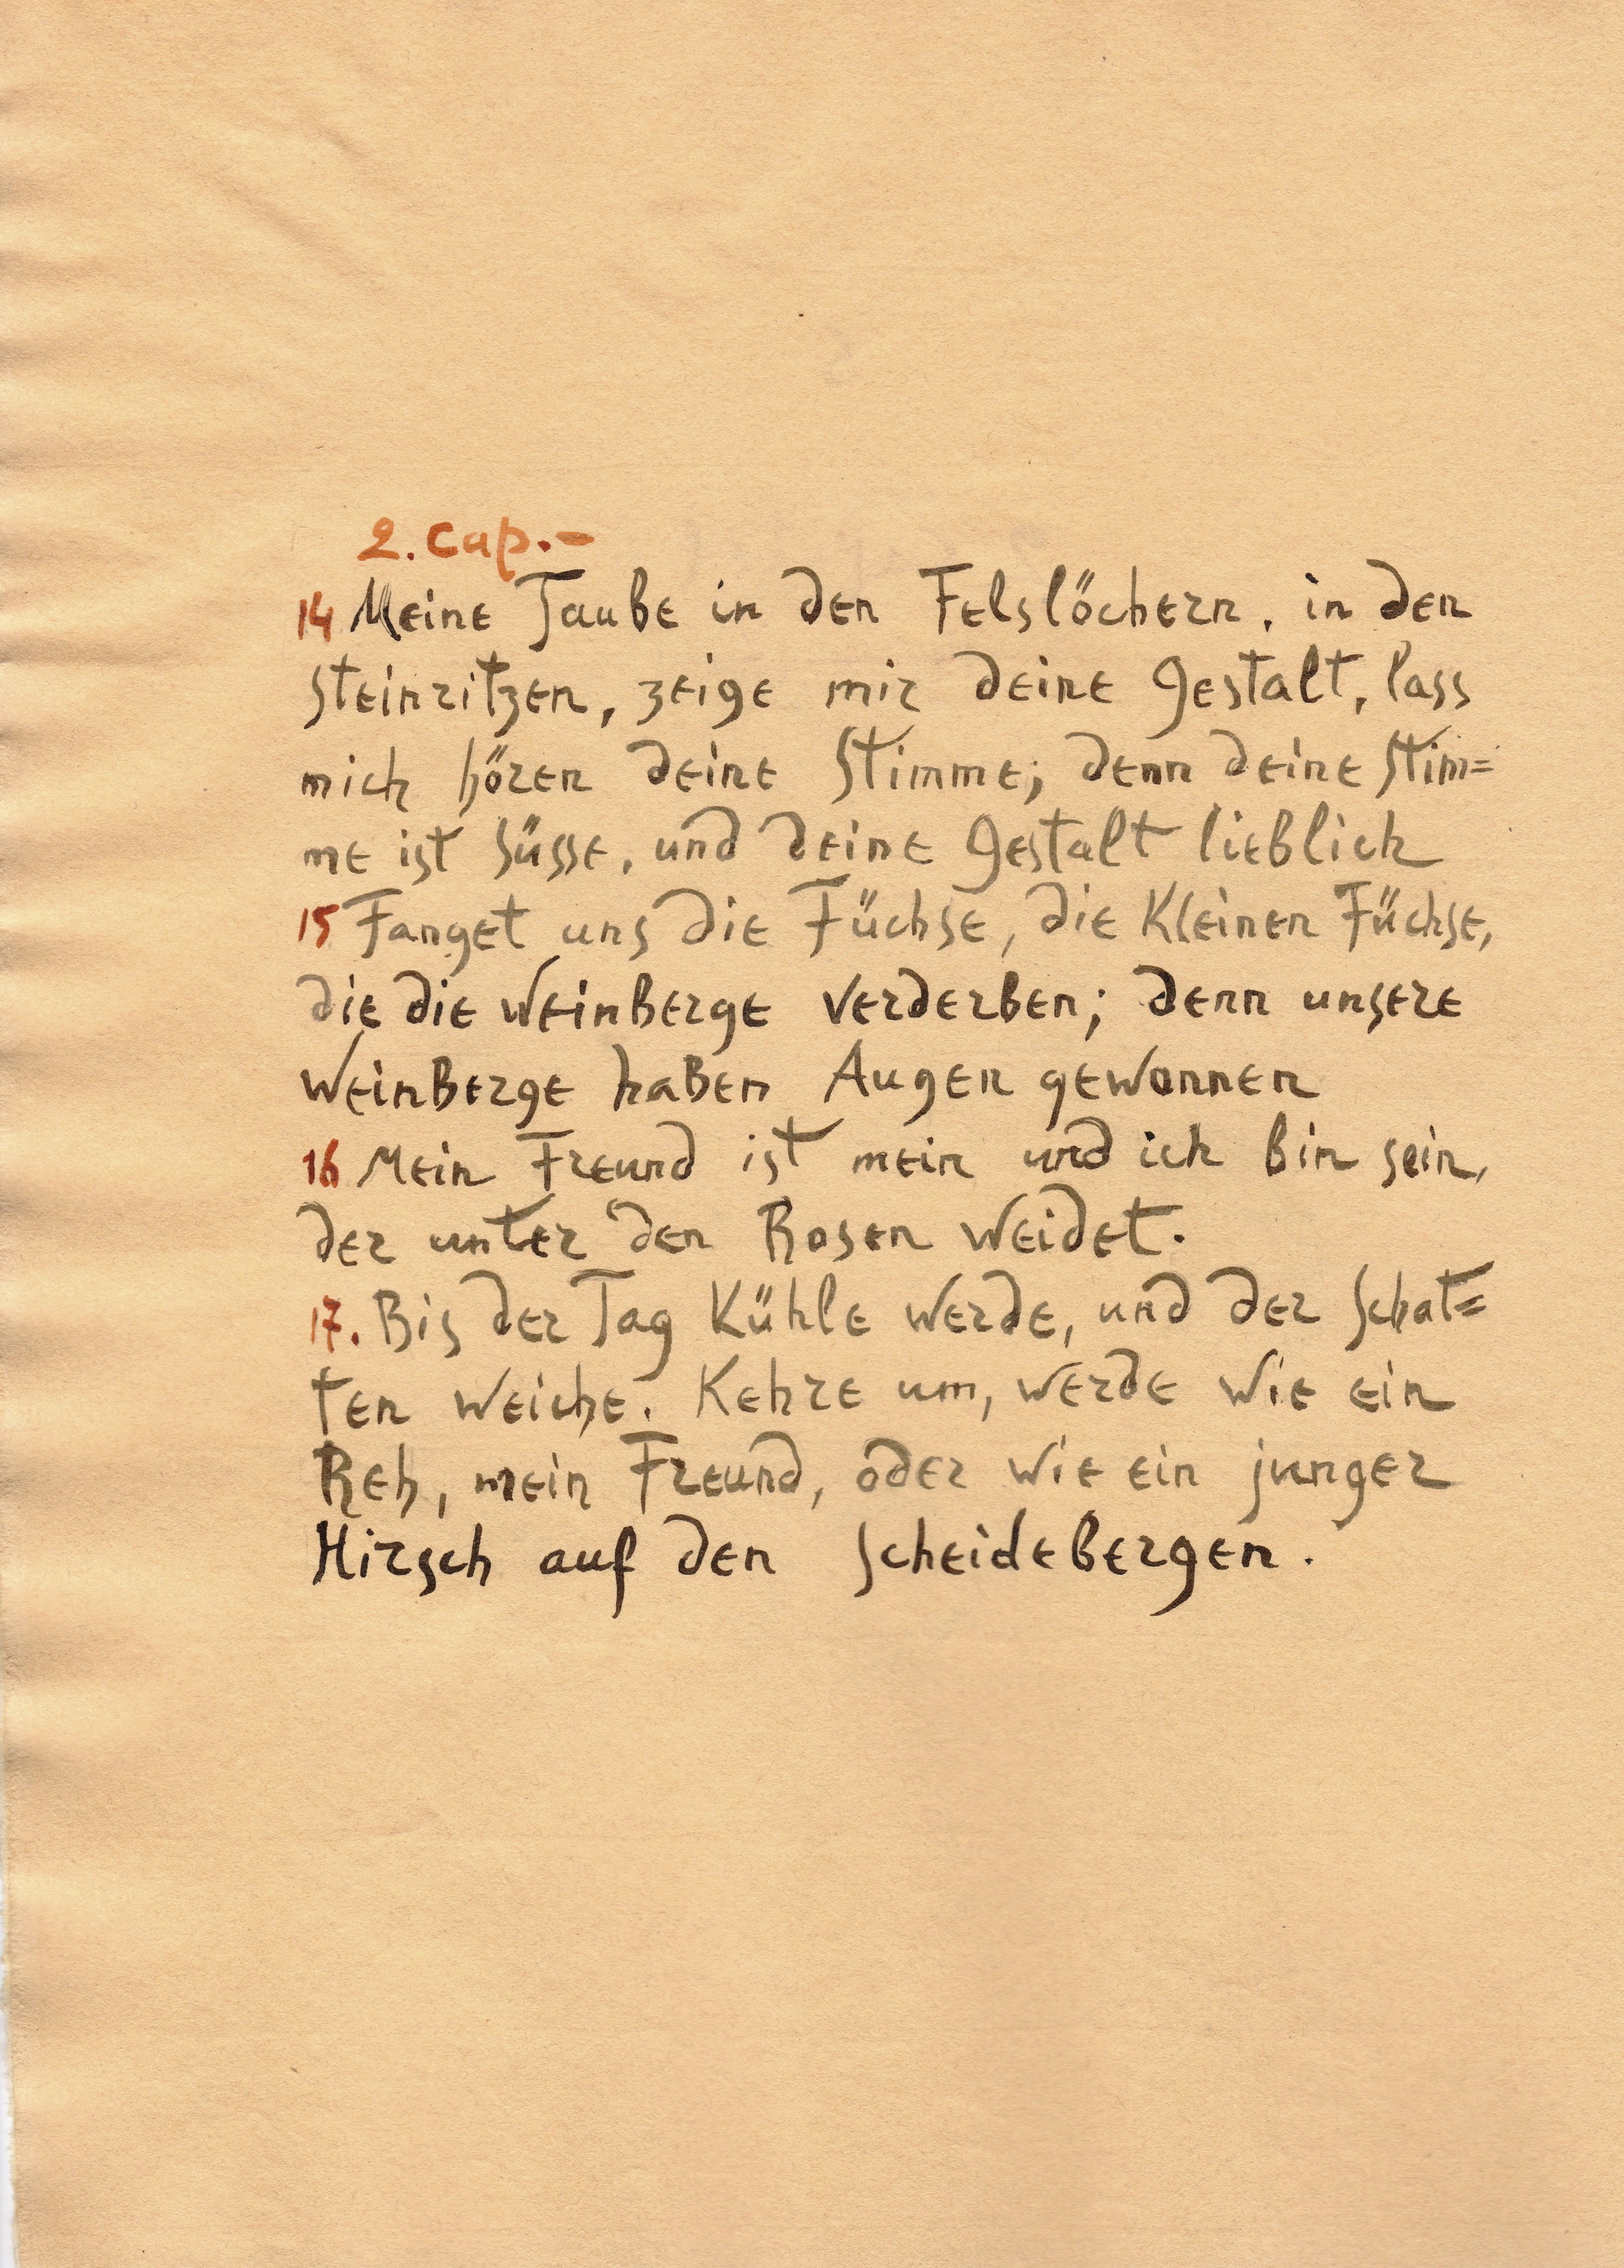 2. Cap.-
14 Meine Taube in den Felslöchern, in den
Steinritzen, zeige mir deine Gestalt, lass
mich hören deine Stimme; denn deine Stim=
me ist süsse, und deine Gestalt lieblich
15 Fanget uns die Füchse, die Kleinen Füchse,
die die Weinberge verderben; denn unsere
Weinberge haben Augen gewonnen
16 Mein Freund ist mein und ich bin sein,
der unter den Rosen weidet.
17. Bis der Tag Kühle werde, und der Schat=
ten weiche. Kehre um, werde wie ein
Reh, mein Freund, oder wie ein junger
Hirsch auf den Scheidebergen.